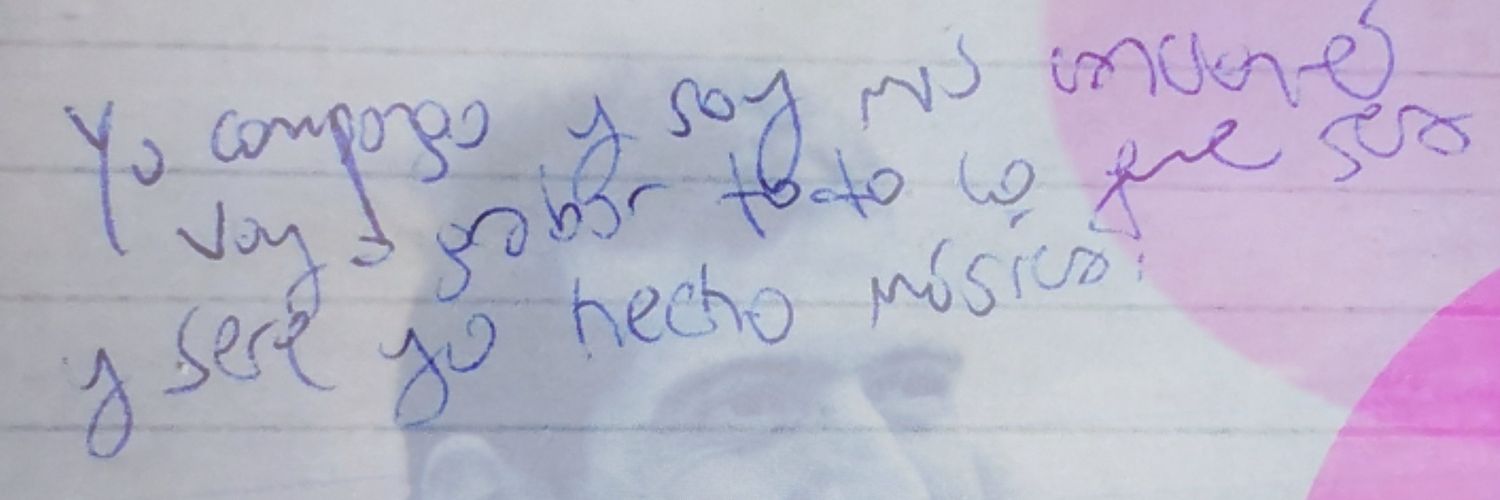 Yo compongo y soy mi
voy a grabar todo lo que sea
y seré yo hecho música.